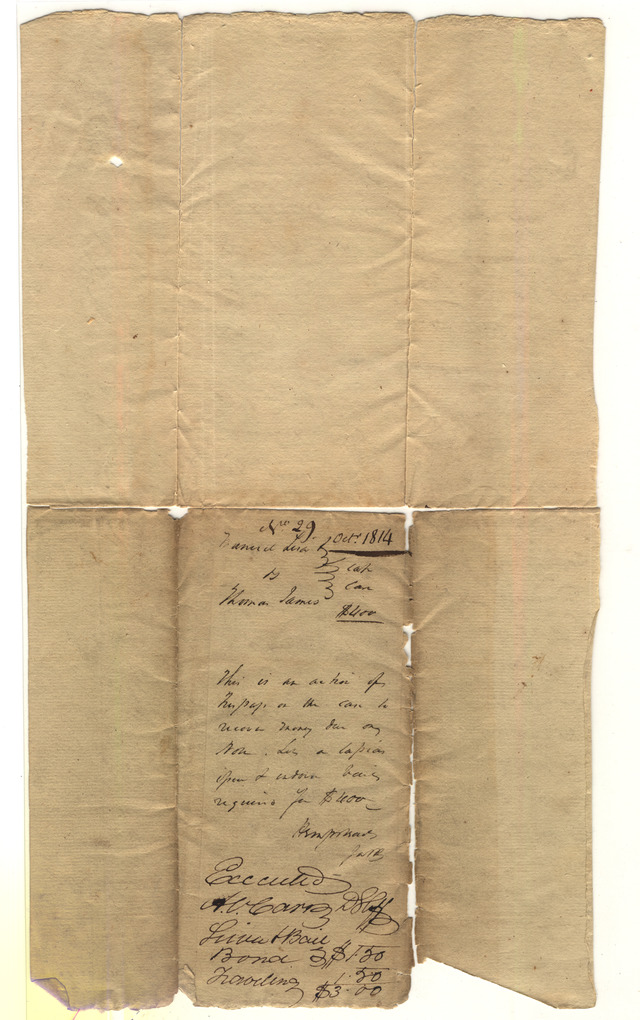 No 29
Octr 1814
Manuel Lisa
vs } cap
Case
Thomas James
$400
This is an action of
Trespass on the case to
recover money due on
Note. Let a capias
issue & endorse bail is
required for $400
Hempstead
Executed
A. V. Carr D Shff
Bond $1.50
Traveling 1.50
$3.00